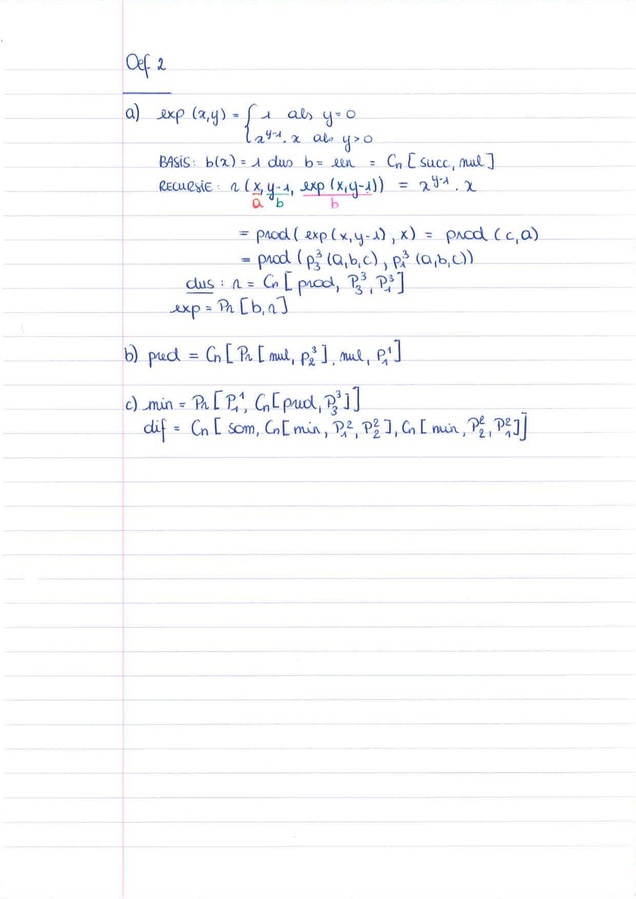 Oef. 2
a) exp (x,y) = { 1 als y=0
x^{y-1}. x als y>0
BASIS: b(x) = 1 dus b = een = Cn [succ, nul]
RECURSIE: r (x, y-1, exp (x,y-1)) = x^{y-1}. x
a b b
= prod( exp(x,y-1), x) = prod (c,a)
= prod (p_3^3 (a,b,c), p_1^3 (a,b,c))
dus : r = Cn [prod, P_3^3, P_1^3]
exp = Pr [b,r]
b) pred = Cn [ Pr [nul, p_2^3], nul, P_1^1]
c) min = Pr [P_1^1, Cn[pred, P_3^3]]
dif = Cn [ som, Cn[min, P_1^2, P_2^2], Cn [min, P_2^2, P_1^2]]